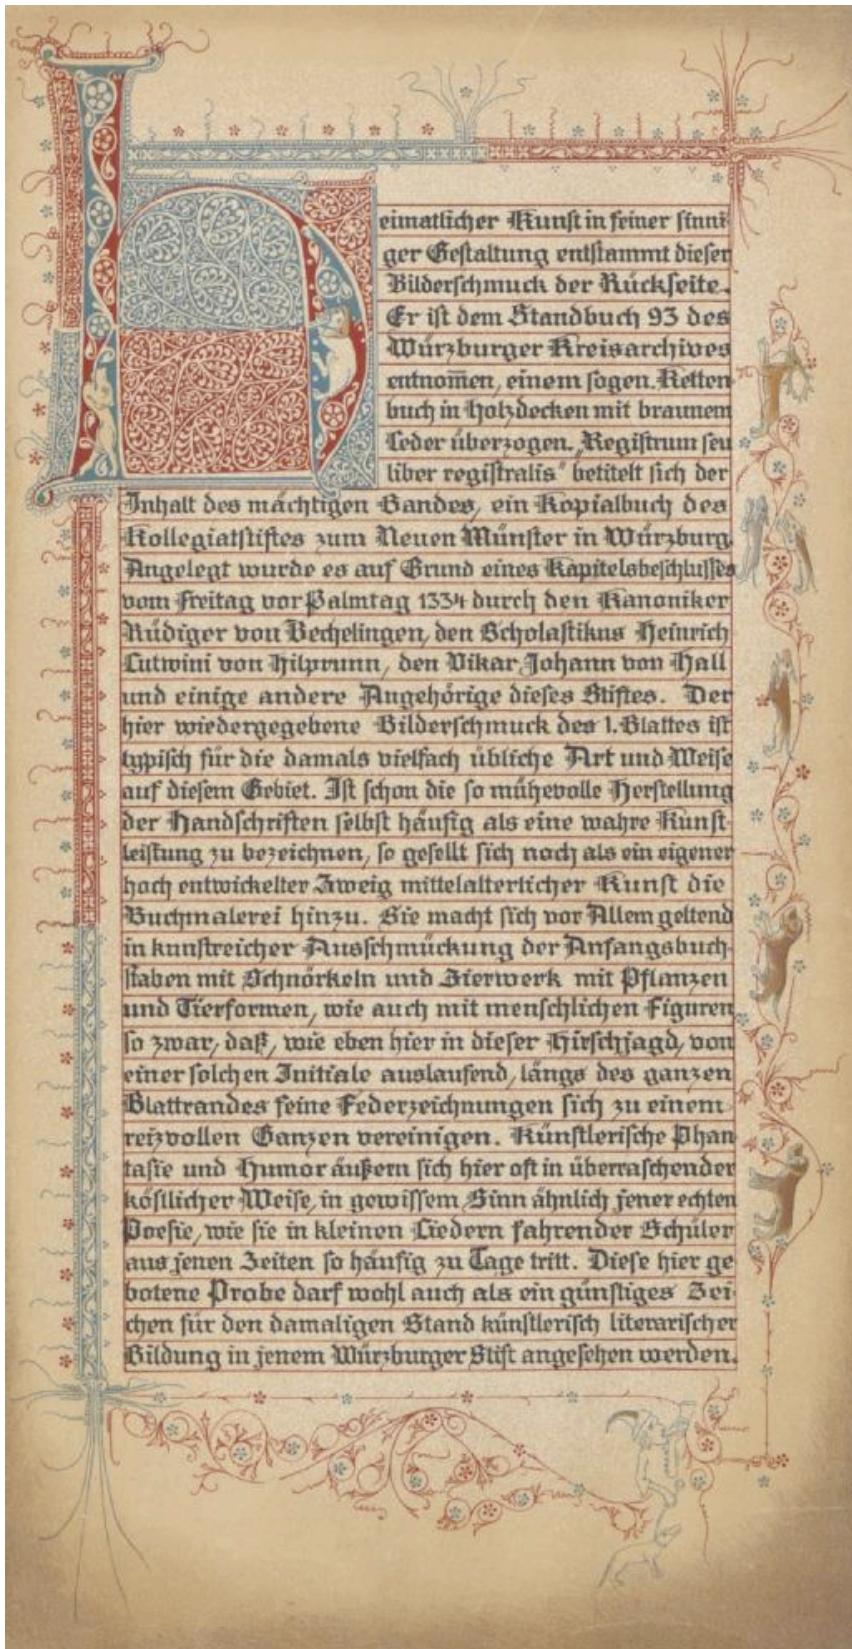 Heimatlicher Kunst in seiner sinni-
ger Gestaltung entstammt dieser
Bilderschmuck der Rückseite.
Er ist dem Standbuch 93 des
Würzburger Kreisarchives
entnom̄en, einem sogen. Ketten-
buch in Holzdecken mit braunem
Leder überzogen. „Registrum seu
liber registralis" betitelt sich der
Inhalt des mächtigen Bandes, ein Kopialbuch des
Kollegiatstiftes zum Neuen Münster in Würzburg.
Angelegt wurde es auf Grund eines Kapitelsbeschlusses
vom Freitag vor Palmtag 1334 durch den Kanoniker
Rüdiger von Bechelingen, den Scholastikus Heinrich
Lutwini von Hilprunn, den Vikar Johann von Hall
und einige andere Angehörige dieses Stiftes. Der
hier wiedergegebene Bilderschmuck des 1. Blattes ist
typisch für die damals vielfach übliche Art und Weise
auf diesem Gebiet. Ist schon die so mühevolle Herstellung
der Handschriften selbst häufig als eine wahre Kunst-
leistung zu bezeichnen, so gesellt sich noch als ein eigener
hoch entwickelter Zweig mittelalterlicher Kunst die
Buchmalerei hinzu. Sie macht sich vor Allem geltend
in kunstreicher Ausschmückung der Anfangsbuch-
staben mit Schnörkeln und Zierwerk mit Pflanzen
und Tierformen, wie auch mit menschlichen Figuren
so zwar, daß, wie eben hier in dieser Hirschjagd, von
einer solchen Initiale auslaufend, längs des ganzen
Blattrandes feine Federzeichnungen sich zu einem
reizvollen Ganzen vereinigen. Künstlerische Phan
tasie und Humor äußern sich hier oft in überraschender
köstlicher Weise, in gewissem Sinn ähnlich jener echten
Poesie, wie sie in kleinen Liedern fahrender Schüler
aus jenen Zeiten so häufig zu Tage tritt. Diese hier ge
botene Probe darf wohl auch als ein günstiges Zei-
chen für den damaligen Stand künstlerisch literarischer
Bildung in jenem Würzburger Stift angesehen werden.